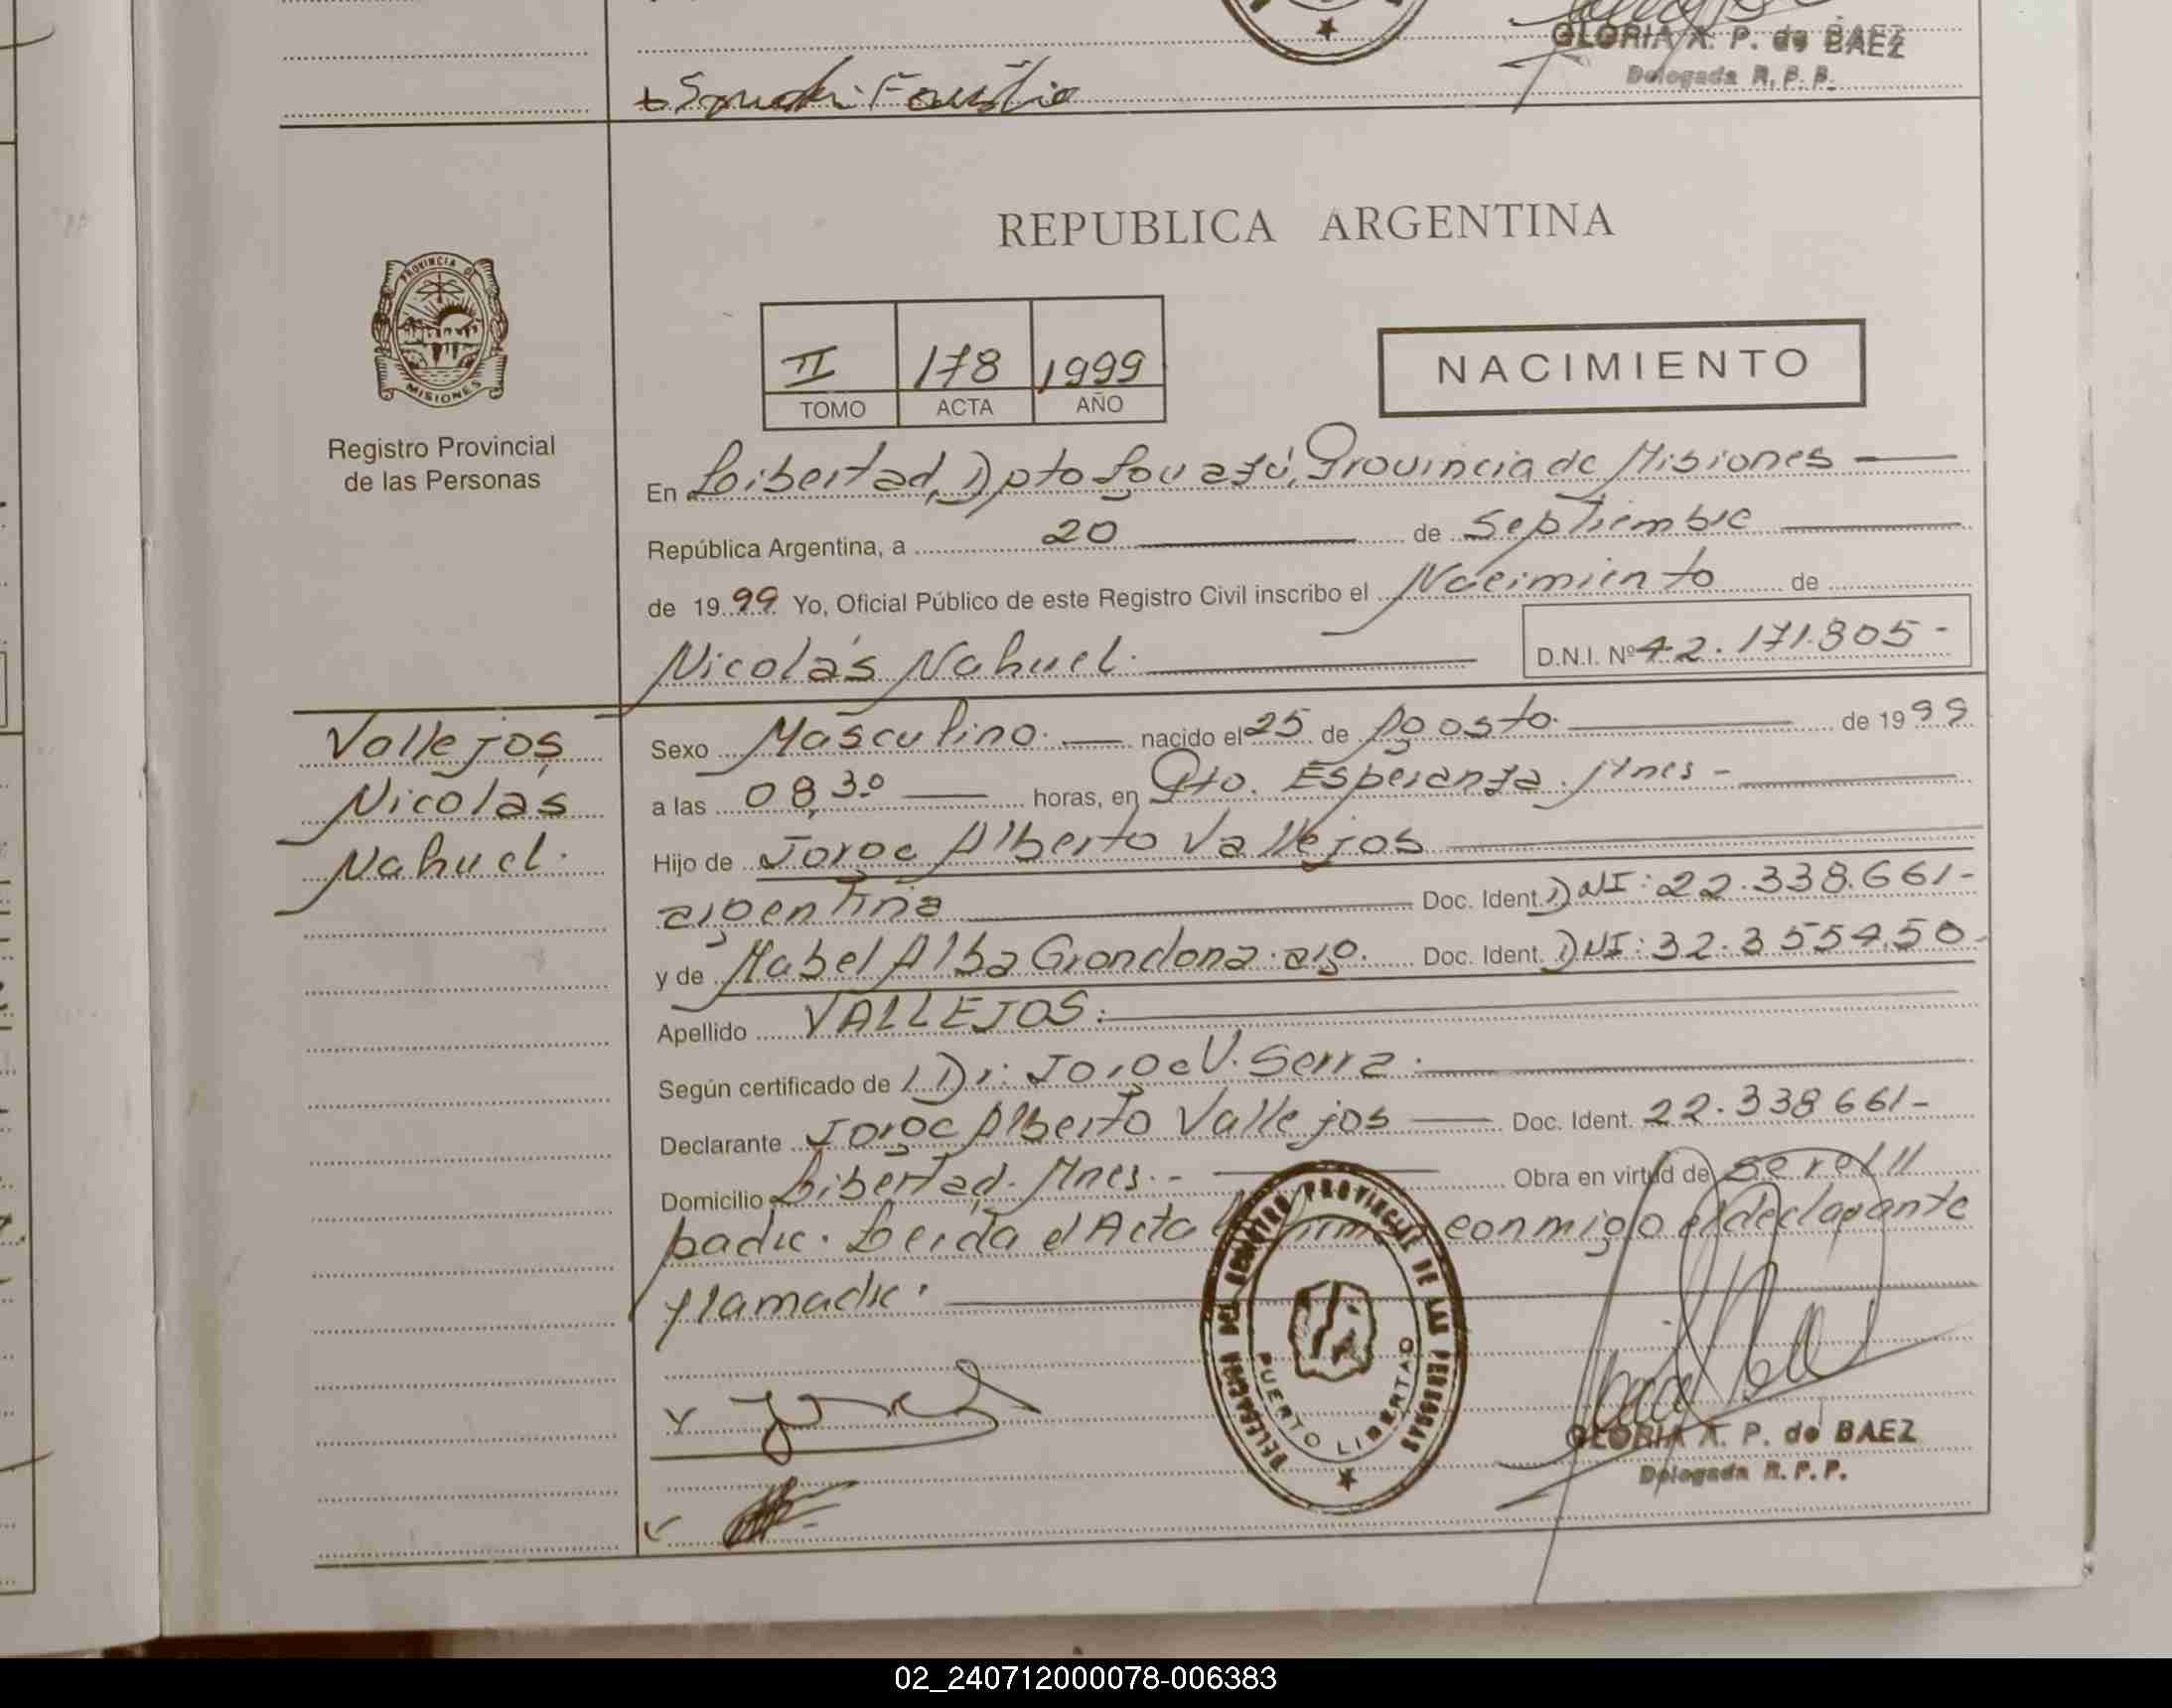 GLORIA A. P. de BAEZ
Delegada R. P. P.
REPUBLICA ARGENTINA
PROVINCIA DE
MISIONES
Registro Provincial
de las Personas
II 178 1999
TOMO ACTA AÑO
NACIMIENTO
En Libertad, Dpto Iguazú, Provincia de Misiones
República Argentina, a 20 de Septiembre
de 1999 Yo, Oficial Público de este Registro Civil inscribo el Nacimiento de
Nicolás Nahuel. D.N.I. Nº 42.171.805-
Vallejos,
Nicolás
Nahuel.
Sexo Masculino. nacido el 25 de Agosto. de 1999
a las 08,30 horas, en Pto. Esperanza. Mnes -
Hijo de Jorge Alberto Vallejos
argentina Doc. Ident. DNI: 22.338.661-
y de Mabel Alba Grondona. arg. Doc. Ident. DNI: 32.3554.50-
Apellido VALLEJOS.
Según certificado de Dr: Jorge V. Serra.
Declarante Jorge Alberto Vallejos Doc. Ident. 22.338661-
Domicilio Libertad. Mnes.- Obra en virtud de ser el
padre. Leida el Acta firma conmigo el declarante
y la madre.
DELEGACION DEL REGISTRO PROVINCIAL DE LAS PERSONAS
PUERTO LIBERTAD
GLORIA A. P. de BAEZ
Delegada R. P. P.
02_240712000078-006383